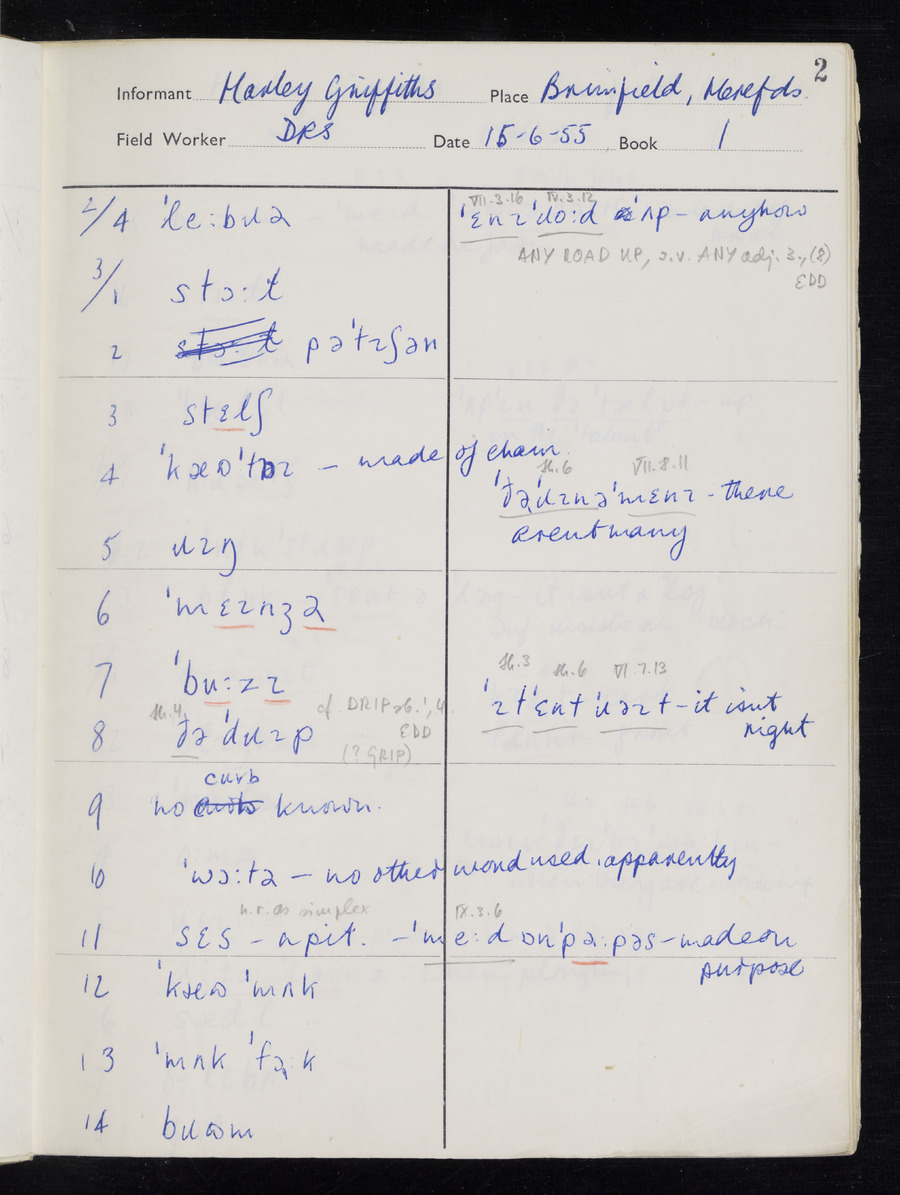 2
Informant Harley Griffiths Place Brimfield, Herefds.
Field Worker DRS Date 15-6-55 Book 1
VII.3.16 IV.3.12
2/4 ˈleːbɹə ˈɛnɪˈɹoːd ˈʌp – anyhow
ANY ROAD UP, s.v. ANY adj. 3., (8)
EDD
3/1 stɔːɫ
2 pəˈtɪʃən
3 stɛlʃ
4 – made of chain.
VII.8.11
ˈðəˈɹɪnəˈmɛnɪ – there
arent many
5 ɹɪŋ
6 ˈmɛɪnʒə
7 ˈbuːzɪ
VI.7.13
ˈɪtˈɛntˈɹəɪt – it isnt
right
cf. DRIP sb.¹, 4
EDD
8 ðəˈdɹɪp
(? GRIP)
curb
9 no known.
10 ˈwɔːtə – no other word used, apparently
n.r. as simplex
IX.3.6
11 sɛs – a pit. – ˈmeːd ɒnˈpəːpəs – made on
purpose
12 ˈkæʊˈmʌk
13 ˈmʌk ˈfəːk
14 bɹʊm